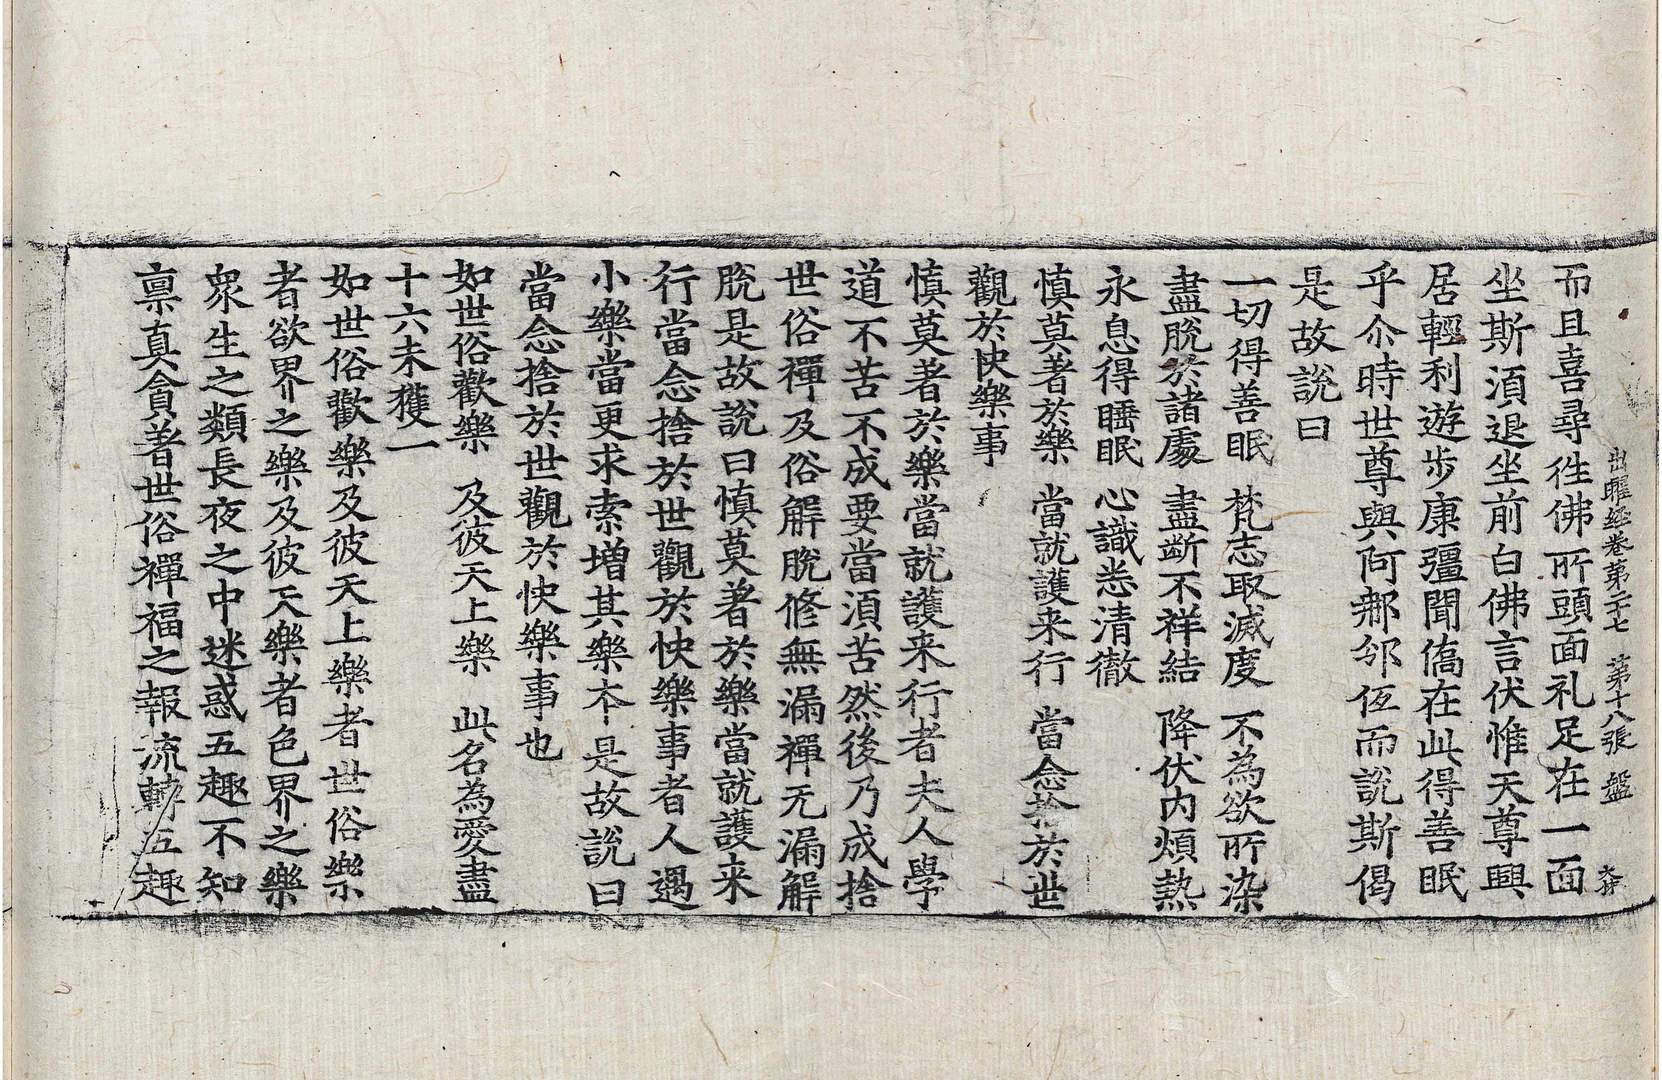 出曜經卷第二十七 第十八張 盤
而且喜尋徃佛所頭面礼足在一面
坐斯湏退坐前白佛言伏惟天尊興
居輕利遊步康彊聞僑在此得善眠
乎尒時世尊與阿𨚗邠伍而說斯偈
是故說曰
一切得善眠 梵志取滅度 不為欲所染
盡脫於諸處 盡斷不祥結 降伏内煩熱
永息得睡眠 心識悉清徹
慎莫著於樂 當就護来行 當念捨於世
觀於快樂事
慎莫著於樂當就護来行者夫人學
道不苦不成要當湏苦然後乃成捨
世俗禪及俗解脫修無漏禪无漏解
脫是故說曰慎莫著於樂當就護来
行當念捨於世觀於快樂事者人遇
小樂當更求索增其樂本是故說曰
當念捨於世觀於快樂事也
如世俗歡樂 及彼天上樂 此名為愛盡
十六未獲一
如世俗歡樂及彼天上樂者世俗樂
者欲界之樂及彼天樂者色界之樂
衆生之類長夜之中迷惑五趣不知
禀真貪著世俗禪福之報流轉五趣